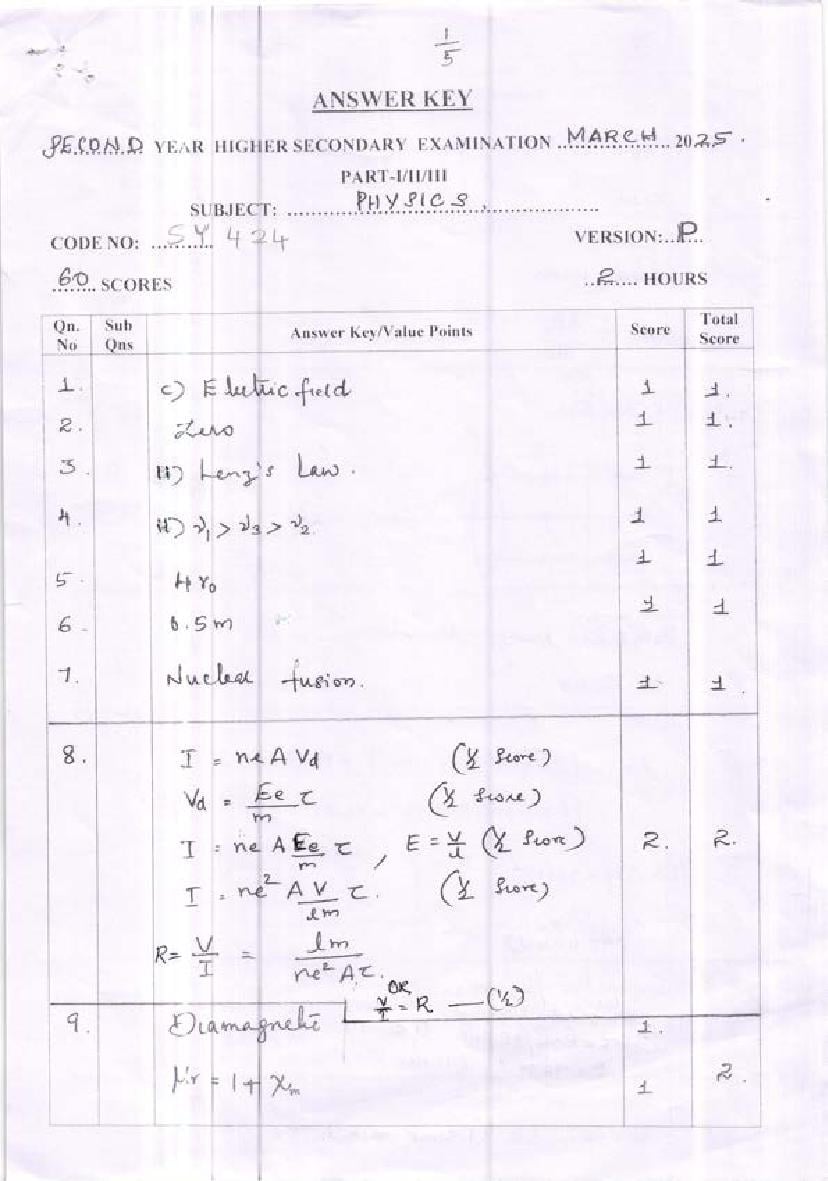 1/5
ANSWER KEY
SECOND YEAR HIGHER SECONDARY EXAMINATION MARCH 2025.
PART-I/II/III
SUBJECT: PHYSICS,
CODE NO: SY 424 VERSION: P
60 SCORES 2 HOURS
Qn. No Sub Qns Answer Key/Value Points Score Total Score
1. c) Electric field 1 1.
2. Zero 1 1.
3. Lenz's Law. 1 1.
4. ν₁ > ν₃ > ν₂ 1 1
5. 4 r₀ 1 1
6. 0.5m 1 1
7. Nuclear fusion. 1 1.
8. I = neAVd (½ Score)
Vd = Ee/m τ (½ Score)
I = ne A Ee/m τ, E = V/l (½ Score) 2. 2.
I = ne² A V/lm τ. (½ Score)
R = V/I = lm/ne² Aτ.
OR V/I = R — (½)
9. Diamagnetic 1.
μr = 1 + χm 1 2.